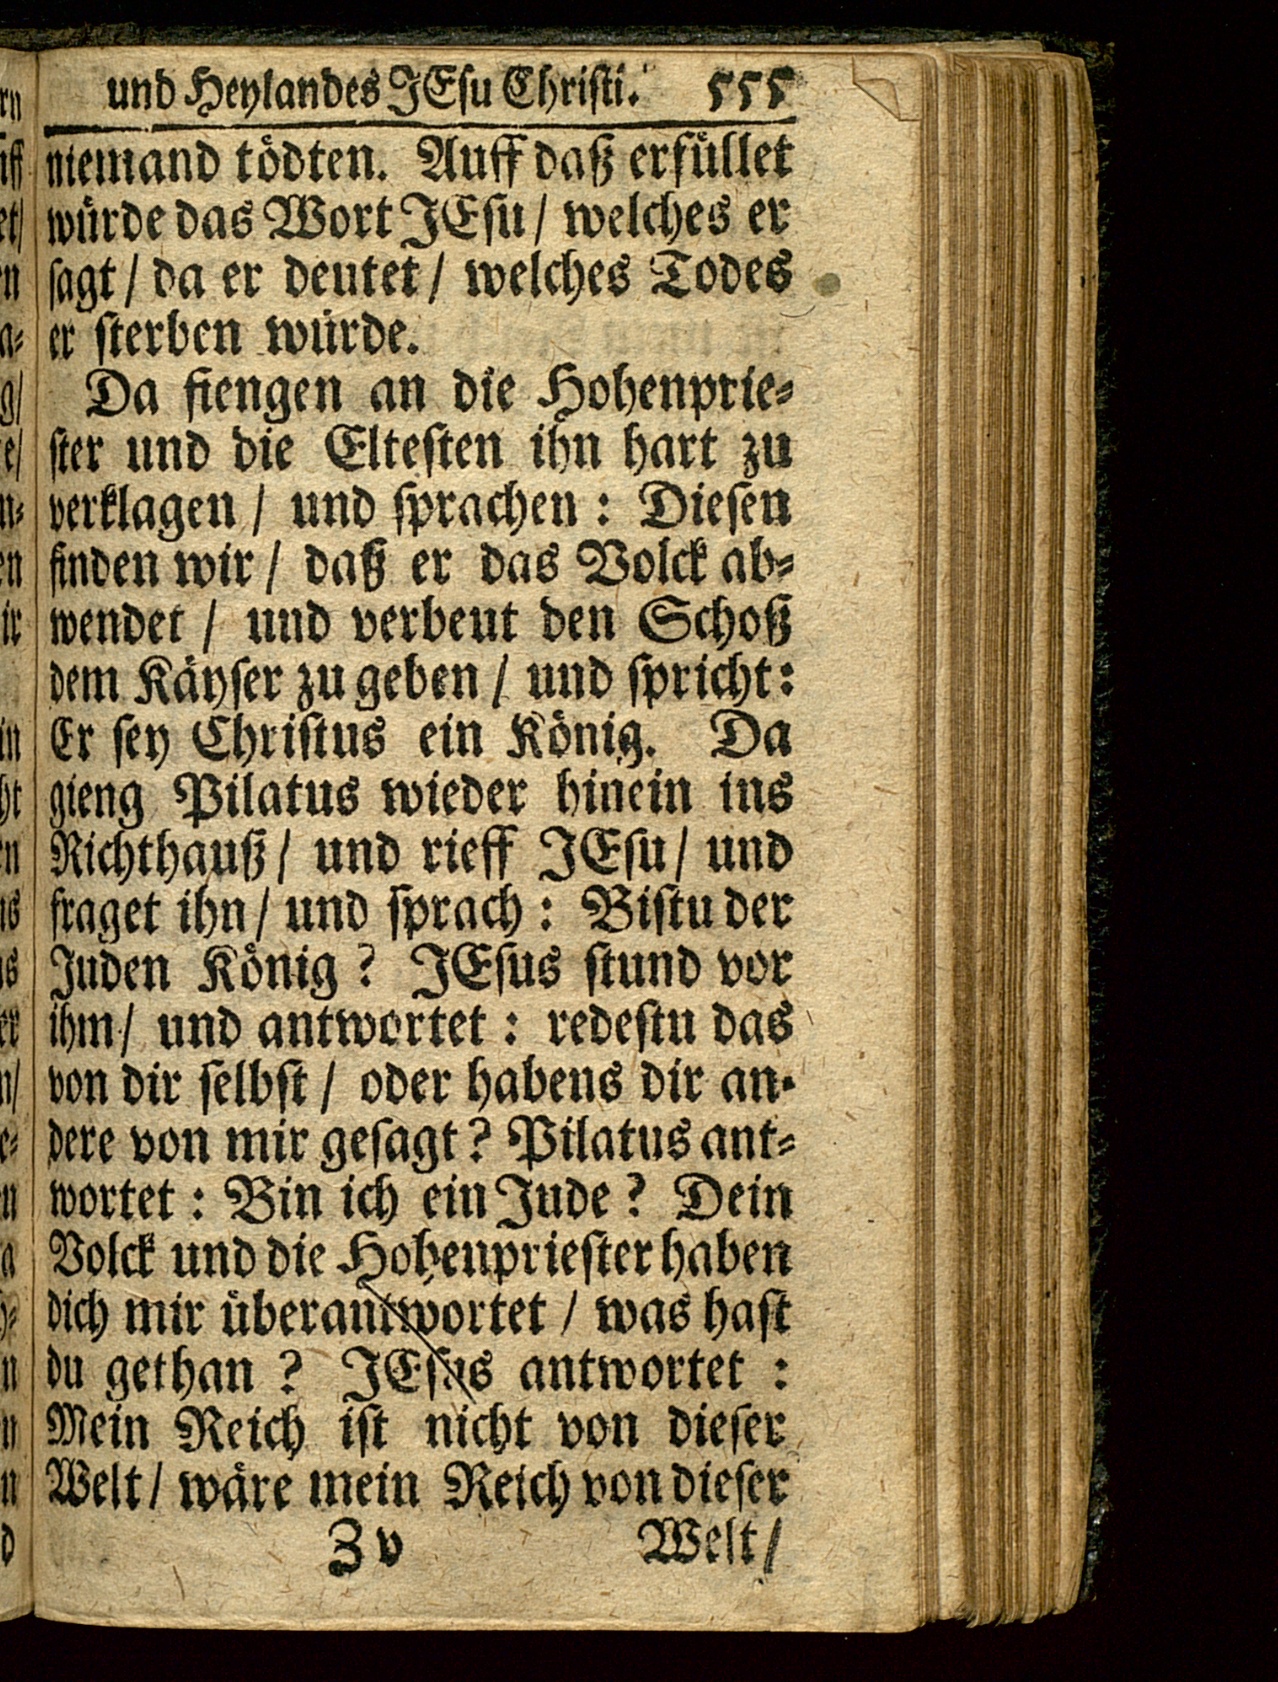 und Heylandes JEsu Christi. 555
niemand tödten. Auff daß erfüllet
würde das Wort JEsu / welches er
sagt / da er deutet / welches Todes
er sterben würde.
Da fiengen an die Hohenprie⸗
ster und die Eltesten ihn hart zu
verklagen / und sprachen : Diesen
finden wir / daß er das Volck ab⸗
wendet / und verbeut den Schoß
dem Käyser zu geben / und spricht:
Er sey Christus ein König. Da
gieng Pilatus wieder hinein ins
Richthauß / und rieff JEsu / und
fraget ihn / und sprach : Bistu der
Juden König ? JEsus stund vor
ihm / und antwortet : redestu das
von dir selbst / oder habens dir an⸗
dere von mir gesagt ? Pilatus ant⸗
wortet : Bin ich ein Jude ? Dein
Volck und die Hohenpriester haben
dich mir überantwortet / was hast
du gethan ? JEsus antwortet :
Mein Reich ist nicht von dieser
Welt / wäre mein Reich von dieser
Z v Welt /